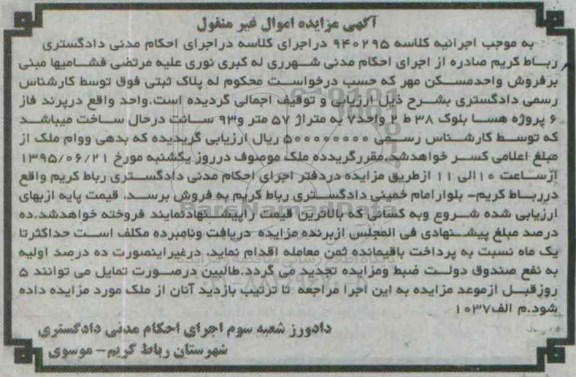 آگهی مزایده اموال غیر منقول
به موجب اجرائیه کلاسه ۹۴۰۲۹۵ دراجرای کلاسه دراجرای احکام مدنی دادگستری
رباط کریم صادره از اجرای احکام مدنی شهرری له کبری نوری علیه مرتضی فشامیها مبنی
برفروش واحدمسکن مهر که حسب درخواست محکوم له پلاک ثبتی فوق توسط کارشناس
رسمی دادگستری بشرح ذیل ارزیابی و توقیف اجمالی گردیده است.واحد واقع درپرند فاز
۶ پروژه هسا بلوک ۳۸ ط ۲ واحد۷ به متراژ ۵۷ متر و۹۳ سانت درحال ساخت میباشد
که توسط کارشناس رسمی ۵۰۰۰۰۰۰۰۰ ریال ارزیابی گردیده که بدهی ووام ملک از
مبلغ اعلامی کسر خواهدشد.مقررگردیده ملک موصوف درروز یکشنبه مورخ ۱۳۹۵/۰۶/۲۱
ازساعت ۱۰الی ۱۱ ازطریق مزایده دردفتر اجرای احکام مدنی دادگستری رباط کریم واقع
دررباط کریم- بلوارامام خمینی دادگستری رباط کریم به فروش برسد. قیمت پایه ازبهای
ارزیابی شده شروع وبه کسانی که بالاترین قیمت راپیشنهادنمایند فروخته خواهدشد.ده
درصد مبلغ پیشنهادی فی المجلس ازبرنده مزایده دریافت ونامبرده مکلف است حداکثرتا
یک ماه نسبت به پرداخت باقیمانده ثمن معامله اقدام نماید. درغیراینصورت ده درصد اولیه
به نفع صندوق دولت ضبط ومزایده تجدید می گردد.طالبین درصورت تمایل می توانند ۵
روزقبل ازموعد مزایده به این اجرا مراجعه تا ترتیب بازدید آنان از ملک مورد مزایده داده
شود.م الف۱۰۳۷
دادورز شعبه سوم اجرای احکام مدنی دادگستری
شهرستان رباط کریم- موسوی